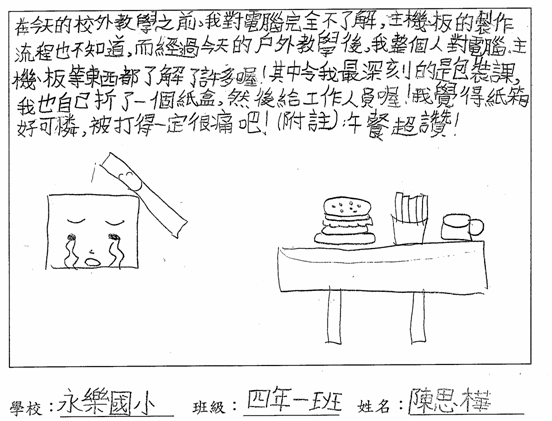 在今天的校外教學之前,我對電腦完全不了解,主機‧板的製作
流程也不知道,而經過今天的戶外教學後,我整個人對電腦、主
機‧板等東西都了解了許多喔!其中令我最深刻的是包裝課,
我也自己折了一個紙盒,然後給工作人員喔!我覺得紙箱
好可憐,被打得一定很痛吧!(附註)午餐超讚!
學校:永樂國小 班級:四年一班 姓名:陳思樺